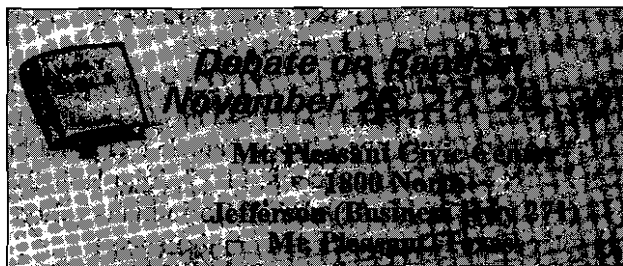 Debate on Baptism
November 26, 27, 29, 30
Mt. Pleasant Civic Center
1800 North
Jefferson (Business Hwy 271)
Mt. Pleasant, Texas